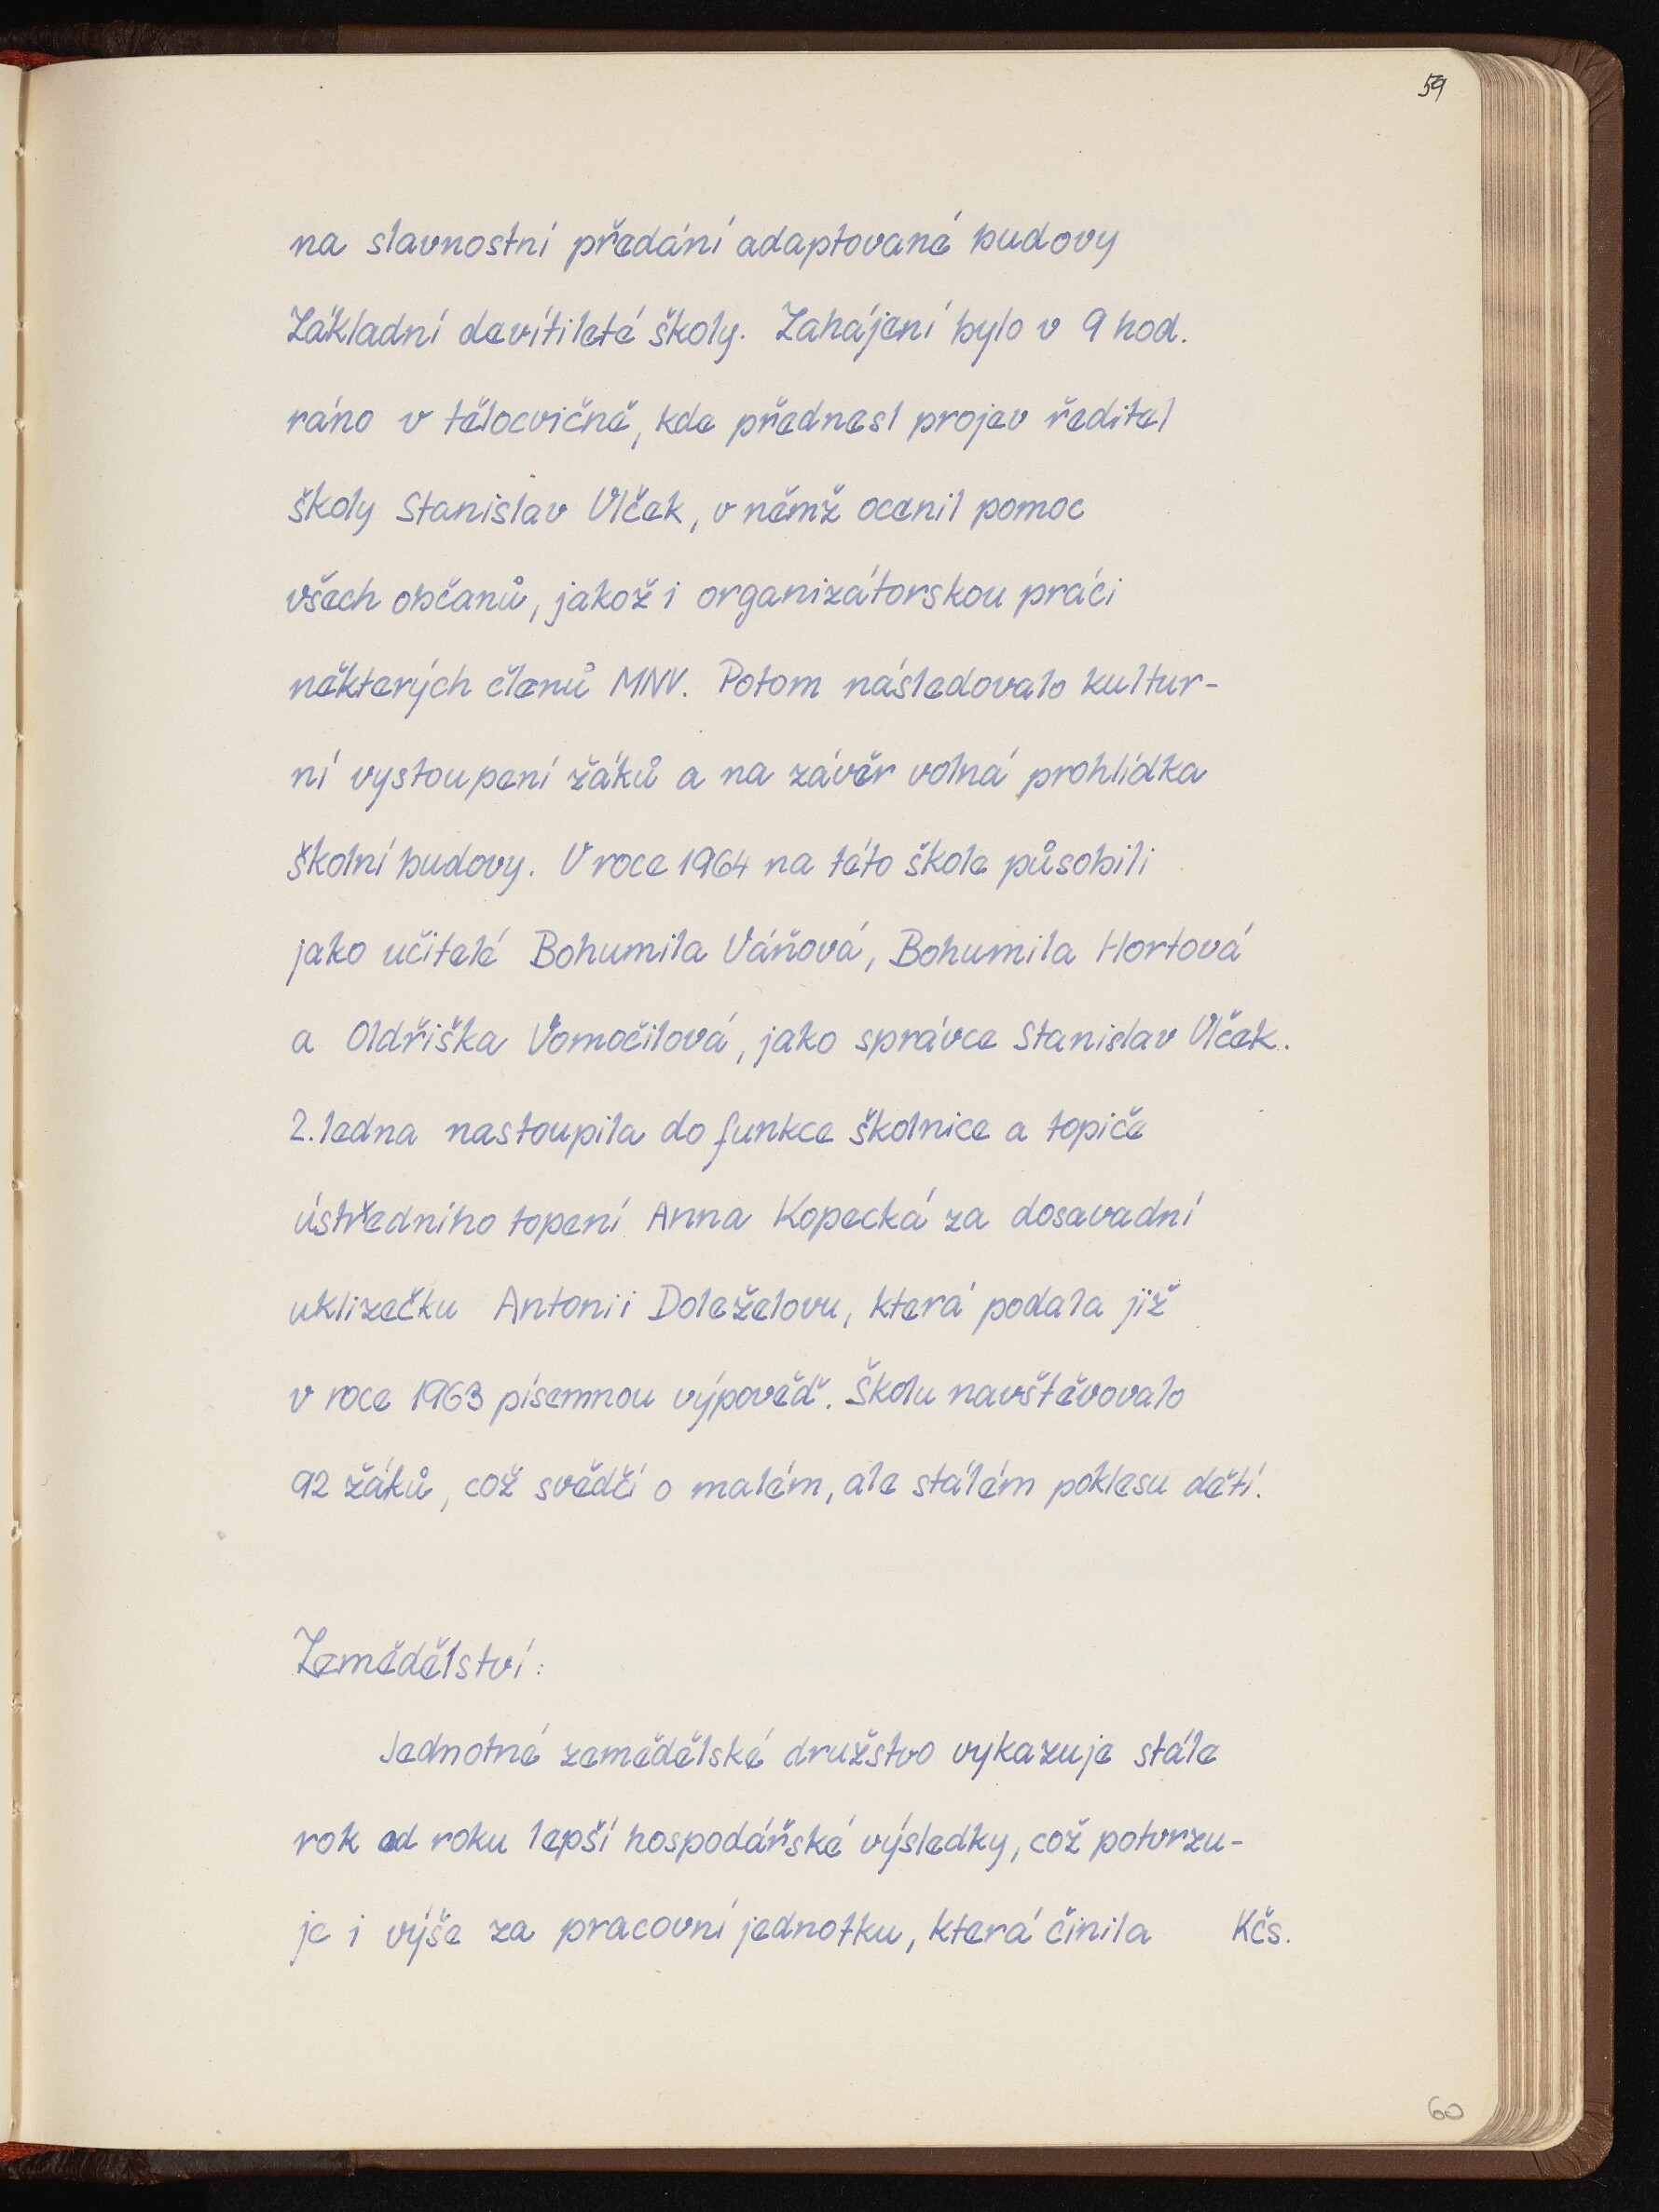 59
na slavnostní předání adaptované budovy
Základní devítileté školy. Zahájení bylo v 9 hod.
ráno v tělocvičně, kde přednesl projev ředitel
školy Stanislav Vlček, v němž ocenil pomoc
všech občanů, jakož i organizátorskou práci
některých členů MNV. Potom následovalo kultur-
ní vystoupení žáků a na závěr volná prohlídka
školní budovy. V roce 1964 na této škole působili
jako učitelé Bohumila Váňová, Bohumila Hortová
a Oldřiška Vomočilová, jako správce Stanislav Vlček.
2. ledna nastoupila do funkce školnice a topiče
ústředního topení Anna Kopecká za dosavadní
uklizečku Antonii Doleželovu, která podala již
v roce 1963 písemnou výpověď. Školu navštěvovalo
92 žáků, což svědčí o malém, ale stálém poklesu dětí.
Zemědělství:
Jednotné zemědělské družstvo vykazuje stále
rok od roku lepší hospodářské výsledky, což potvrzu-
je i výše za pracovní jednotku, která činila Kčs.
60